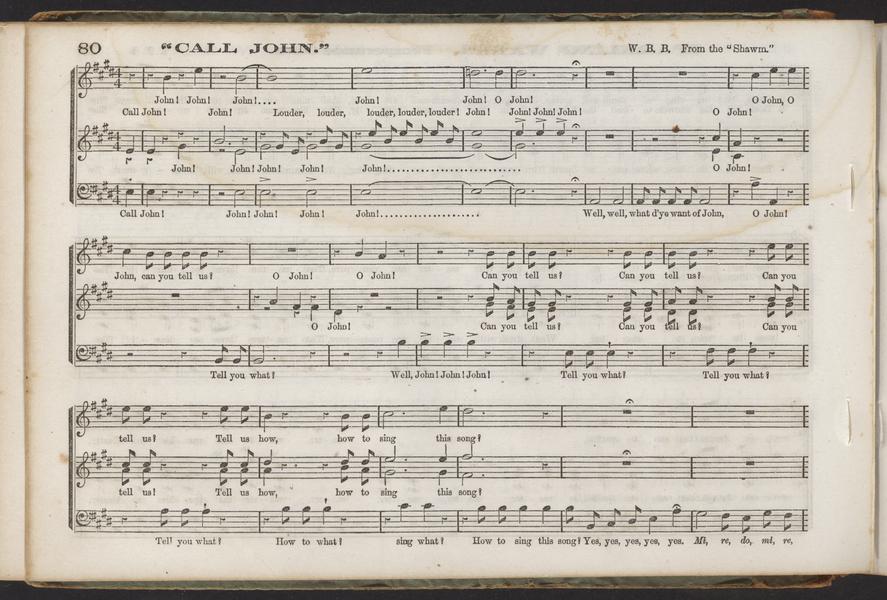 80 "CALL JOHN." W. B. B. From the "Shawm."
John! John! John!.... John! John! O John! O John, O
Call John! John! Louder, louder, louder, louder, louder! John! John! John! John! O John!
John! John! John! John!........................ O John!
Call John! John! John! John! John!.................. Well, well, what d'ye want of John, O John!
John, can you tell us? O John! O John! Can you tell us? Can you tell us? Can you
O John! Can you tell us? Can you tell us? Can you
Tell you what? Well, John! John! John! Tell you what? Tell you what?
tell us? Tell us how, how to sing this song?
tell us! Tell us how, how to sing this song?
Tell you what? How to what? sing what? How to sing this song? Yes, yes, yes, yes, yes. Mi, re, do, mi, re,